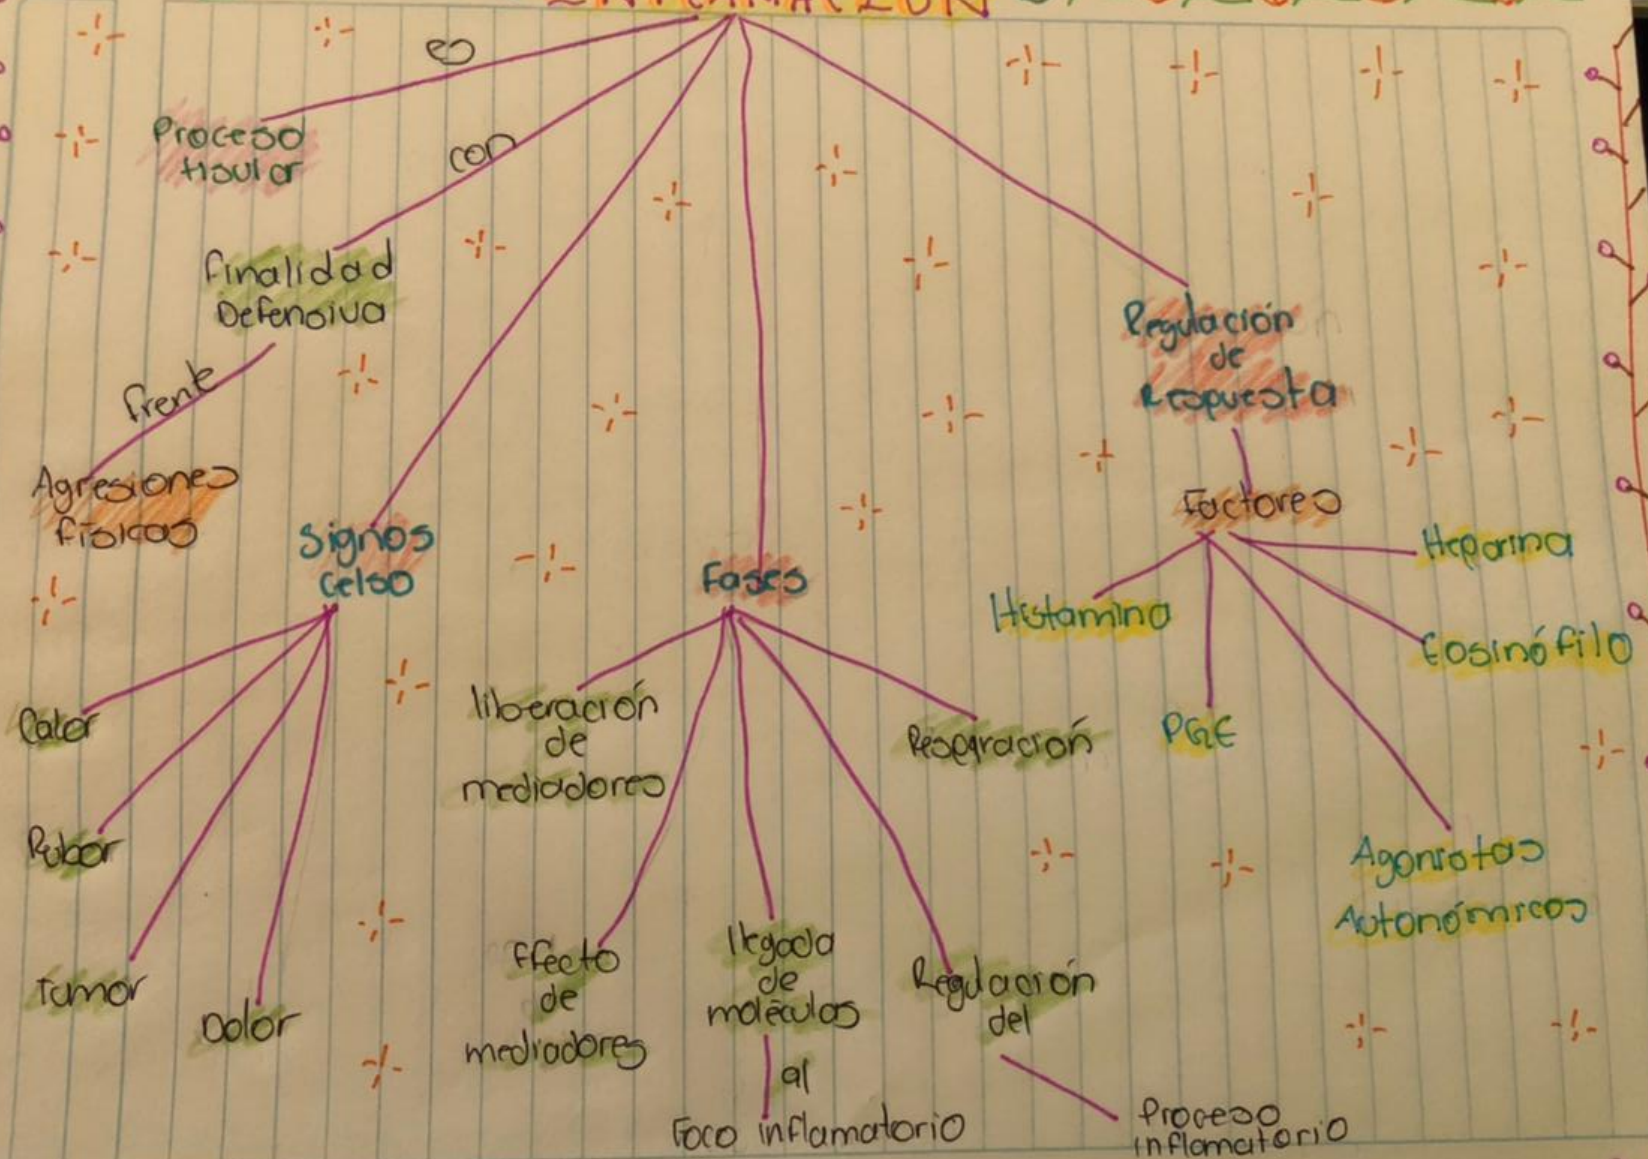 INFLAMACIÓN
es
Proceso
tisular
con
finalidad
Defensiva
frente
Agresiones
físicas
Signos
Celso
Calor
Rubor
Tumor
Dolor
Fases
liberación
de
mediadores
Efecto
de
mediadores
llegada
de
moléculas
al
Foco inflamatorio
Regulación
del
Proceso
inflamatorio
Reparación
Regulación
de
Respuesta
Factores
Histamina
PGE
Agonistas
Autonómicos
Eosinófilo
Heparina